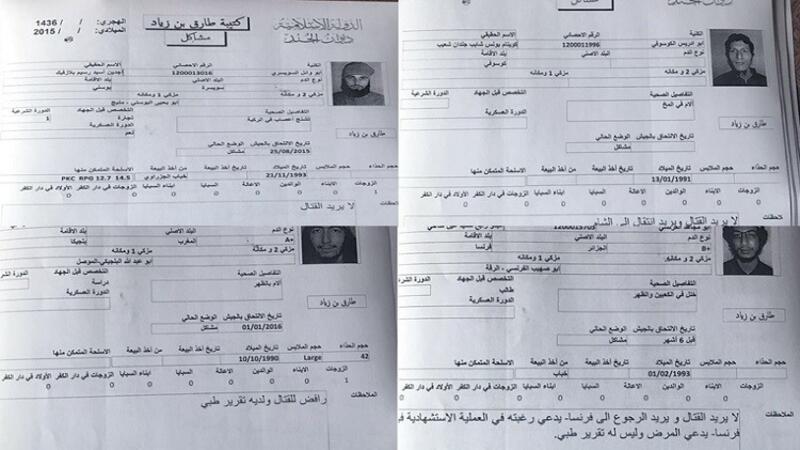 الدولة الاسلامية
ديوان الجند
كتيبة طارق بن زياد
مشاكل
الهجري: / / 1436
الميلادي: / / 2015
الكنية
الرقم الاحصائي
الاسم الحقيقي
ابو وائل السويسري
1200013016
نوع الدم
البلد الاصلي
بلد الاقامة
سويسرة
بوسني
مزكي 2 و مكانه
مزكي 1 ومكانه
ابو يحيى البوسني - منبج
التفاصيل الصحية
التخصص قبل الجهاد
الدورة الشرعية
تشنج اعصاب في الركبة
تجارة
1
الدورة العسكرية
نعم
طارق بن زياد
تاريخ الالتحاق بالجيش
الوضع الحالي
25/08/2015
مشاكل
حجم الحذاء
حجم الملابس
تاريخ الميلاد
تاريخ أخذ البيعة
من أخذ البيعة
الاسلحة المتمكن منها
21/11/1993
خباب الجزراوي
PKC RPG 12.7 14.5
الزوجات
الابناء
الوالدين
الاعالة
السبايا
ابناء السبايا
الزوجات في دار الكفر
الأولاد في دار الكفر
1
0
0
0
0
0
0
0
لا يريد القتال
مشاكل
الكنية
الرقم الاحصائي
الاسم الحقيقي
ابو ادريس الكوسوفي
1200011996
نوع الدم
البلد الاصلي
بلد الاقامة
كوسوفي
مزكي 2 و مكانه
مزكي 1 ومكانه
التفاصيل الصحية
التخصص قبل الجهاد
الدورة الشرعية
آلام في المخ
الدورة العسكرية
طارق بن زياد
تاريخ الالتحاق بالجيش
الوضع الحالي
مشاكل
حجم الحذاء
حجم الملابس
تاريخ الميلاد
تاريخ أخذ البيعة
من أخذ البيعة
الاسلحة المتمكن منها
13/01/1991
الزوجات
الابناء
الوالدين
الاعالة
السبايا
ابناء السبايا
الزوجات في دار الكفر
الأولاد في دار الكفر
ملاحظات
لا يريد القتال ويريد انتقال الى الشام
نوع الدم
البلد الاصلي
بلد الاقامة
A+
المغرب
بلجيكا
مزكي 2 و مكانه
مزكي 1 ومكانه
ابو عبد الله البلجيكي-الموصل
التفاصيل الصحية
التخصص قبل الجهاد
الدورة الشرعية
آلام بالظهر
دراسة
0
الدورة العسكرية
طارق بن زياد
تاريخ الالتحاق بالجيش
الوضع الحالي
01/01/2016
مشاكل
حجم الحذاء
حجم الملابس
تاريخ الميلاد
تاريخ أخذ البيعة
من أخذ البيعة
الاسلحة المتمكن منها
42
Large
10/10/1990
الزوجات
الابناء
الوالدين
الاعالة
السبايا
ابناء السبايا
الزوجات في دار الكفر
الأولاد في دار الكفر
1
0
0
0
0
0
0
0
الملاحظات
رافض للقتال ولديه تقرير طبي
ابو مجاهد الفرنسي
1200015705
نوع الدم
البلد الاصلي
بلد الاقامة
B+
الجزائر
فرنسا
مزكي 2 و مكانه
مزكي 1 ومكانه
ابو صهيب الفرنسي - الرقة
التفاصيل الصحية
التخصص قبل الجهاد
الدورة الشرعية
خلل في الكعبين والظهر
طالب
الدورة العسكرية
طارق بن زياد
تاريخ الالتحاق بالجيش
الوضع الحالي
قبل 6 أشهر
مشاكل
حجم الحذاء
حجم الملابس
تاريخ الميلاد
تاريخ أخذ البيعة
من أخذ البيعة
الاسلحة المتمكن منها
01/02/1993
خباب
الزوجات
الابناء
الوالدين
الاعالة
السبايا
ابناء السبايا
الزوجات في دار الكفر
الأولاد في دار الكفر
0
0
0
0
0
0
0
الملاحظات
لا يريد القتال و يريد الرجوع الى فرنسا- يدعي رغبته في العملية الاستشهادية في
فرنسا- يدعي المرض وليس له تقرير طبي.